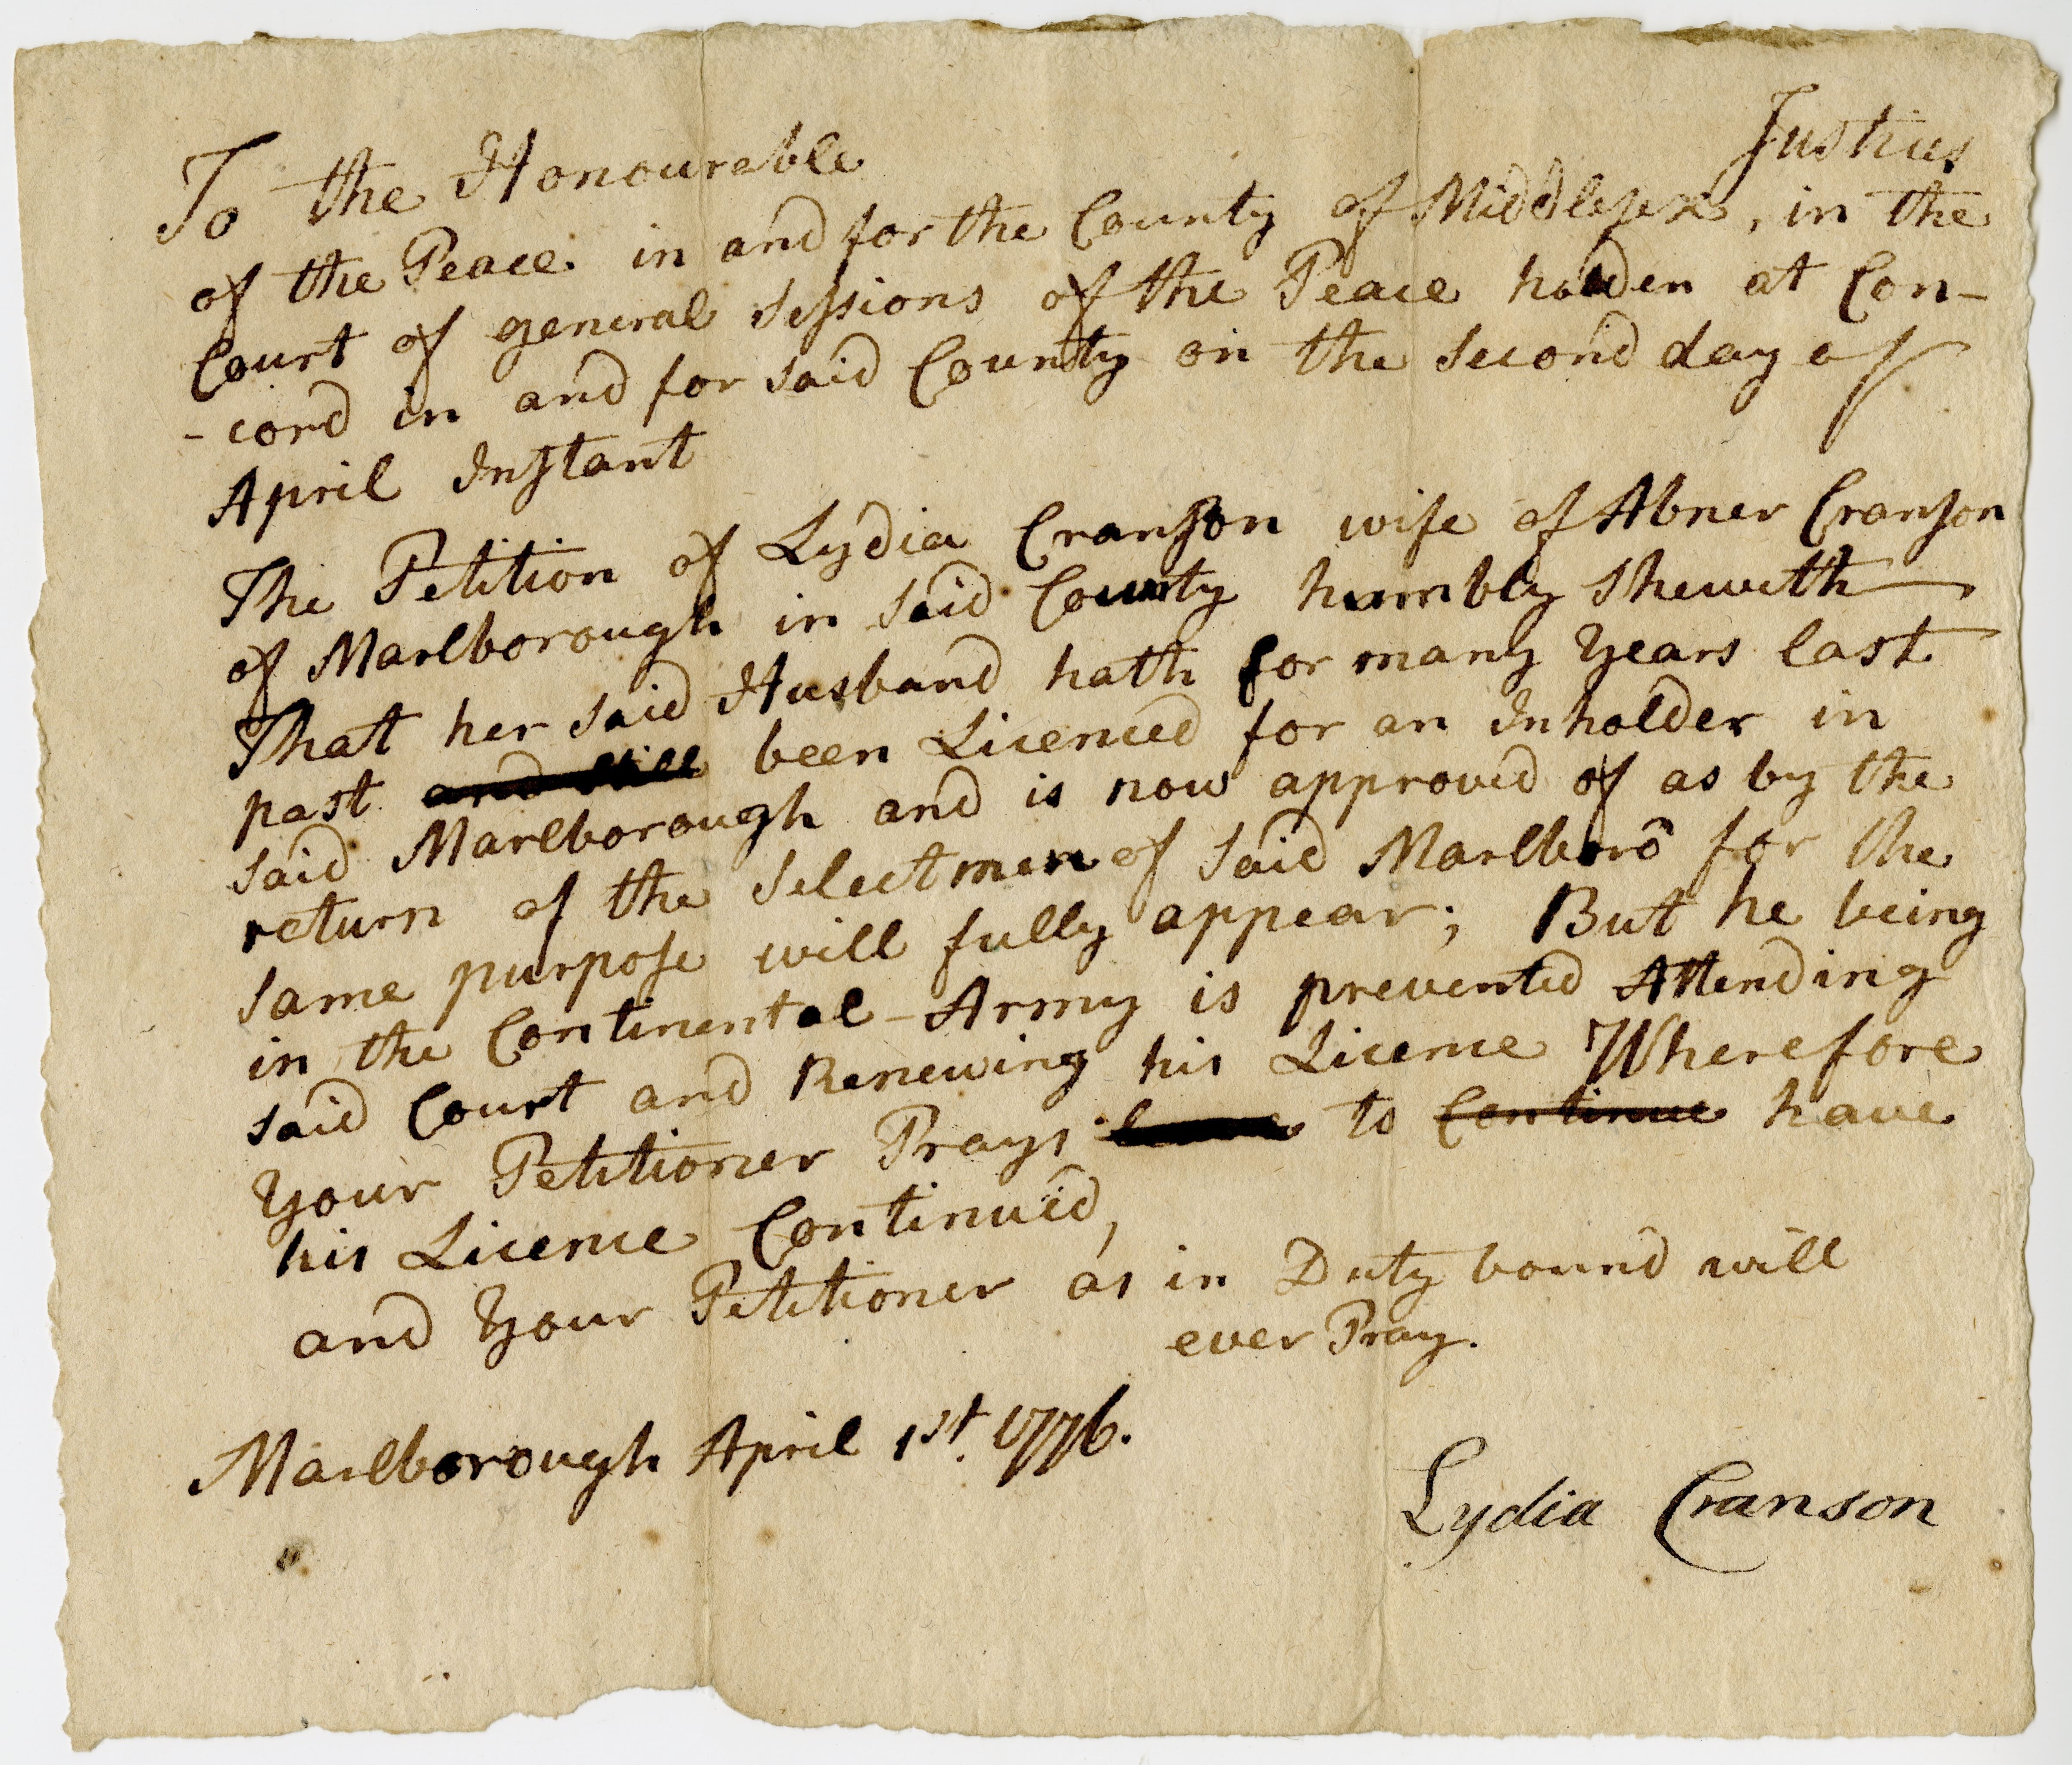 To the Honourable Justices
of the Peace in and for the County of Middlesex, in the
Court of general Sessions of the Peace holden at Con-
-cord in and for said County on the second day of
April Instant
The Petition of Lydia Cranson wife of Abner Cranson
of Marlborough in said County humbly sheweth
That her said Husband hath for many Years last
past and still been Licenced for an Inholder in
said Marlborough and is now approved of as by the
return of the Selectmen of said Marlboro for the
same purpose will fully appear; But he being
in the Continental-Army is prevented Attending
said Court and Renewing his Licence Wherefore
Your Petitioner Prays to Continue have
his Licence Continued,
and Your Petitioner as in Duty bound will
ever Pray.
Marlborough April 1st. 1776.
Lydia Cranson